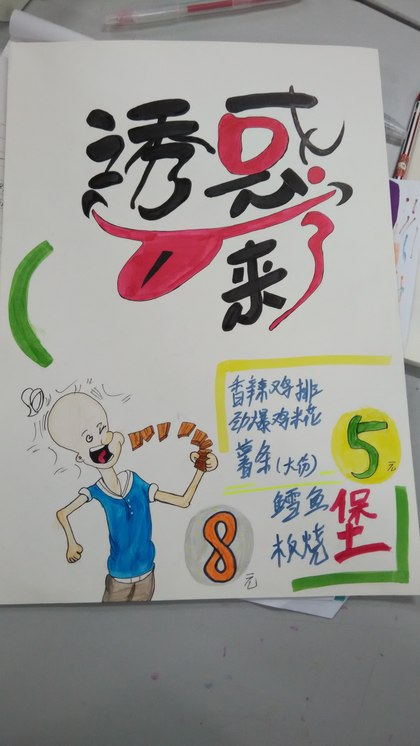 誘惑
来了
香辣鸡排
劲爆鸡米花
薯条(大份)
5元
鳕鱼
板烧
堡
8元